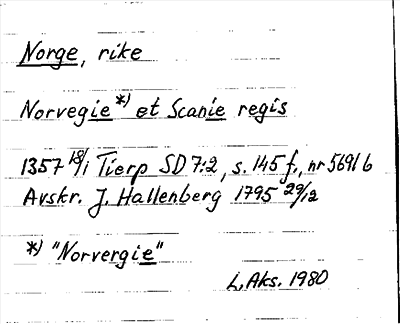 Norge, rike
Norvegie *) et Scanie regis
1357 18/1 Tierp SD 7:2, s. 145 f., nr 5691 b
Avskr. J. Hallenberg 1795 29/12
*) "Norvergie"
L, Aks. 1980